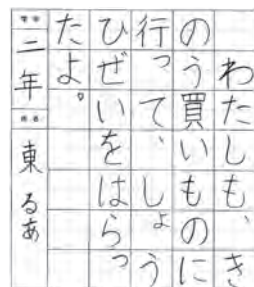 わたしも、き
のう買いものに
行って、しょう
ひぜいをはらっ
たよ。
三年
東るあ